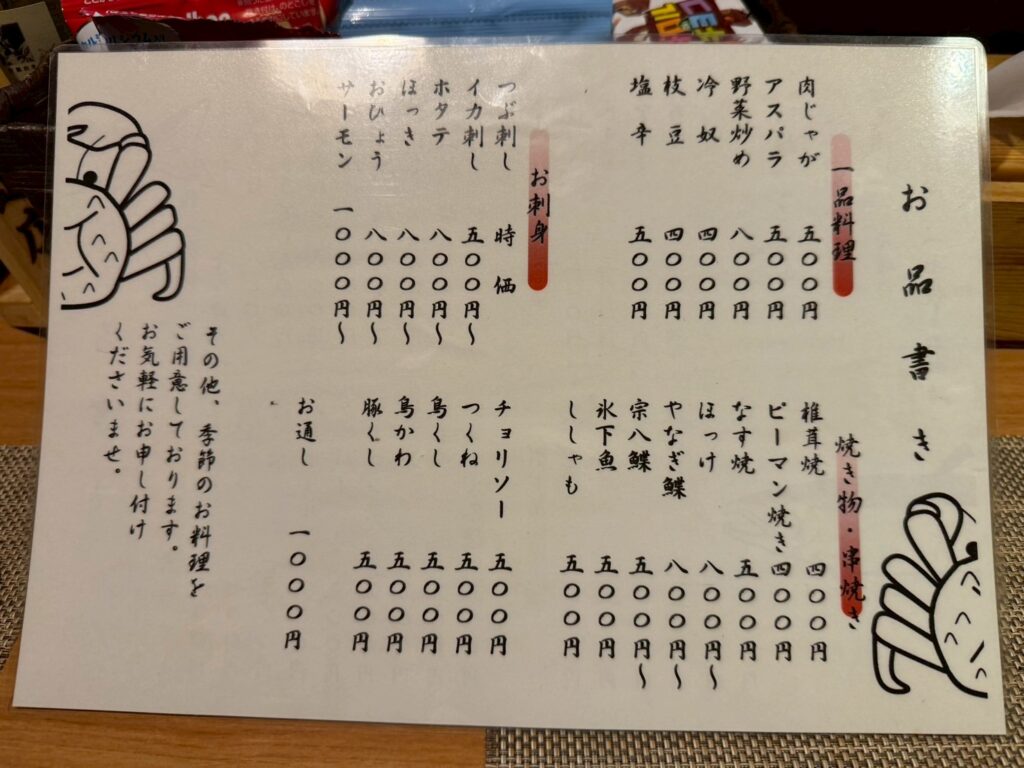 お品書き
一品料理
肉じゃが 五〇〇円
アスパラ 五〇〇円
野菜炒め 八〇〇円
冷奴 四〇〇円
枝豆 四〇〇円
塩辛 五〇〇円
お刺身
つぶ刺し 時価
イカ刺し 五〇〇円～
ホタテ 八〇〇円～
ほっき 八〇〇円～
おひょう 八〇〇円～
サーモン 一〇〇〇円～
焼き物・串焼き
椎茸焼 四〇〇円
ピーマン焼き 四〇〇円
なす焼 五〇〇円
ほっけ 八〇〇円～
やなぎ鰈 八〇〇円～
宗八鰈 五〇〇円～
氷下魚 五〇〇円
ししゃも 五〇〇円
チョリソー 五〇〇円
つくね 五〇〇円
鳥くし 五〇〇円
鳥かわ 五〇〇円
豚くし 五〇〇円
お通し 一〇〇〇円
その他、季節のお料理を
ご用意しております。
お気軽にお申し付け
くださいませ。